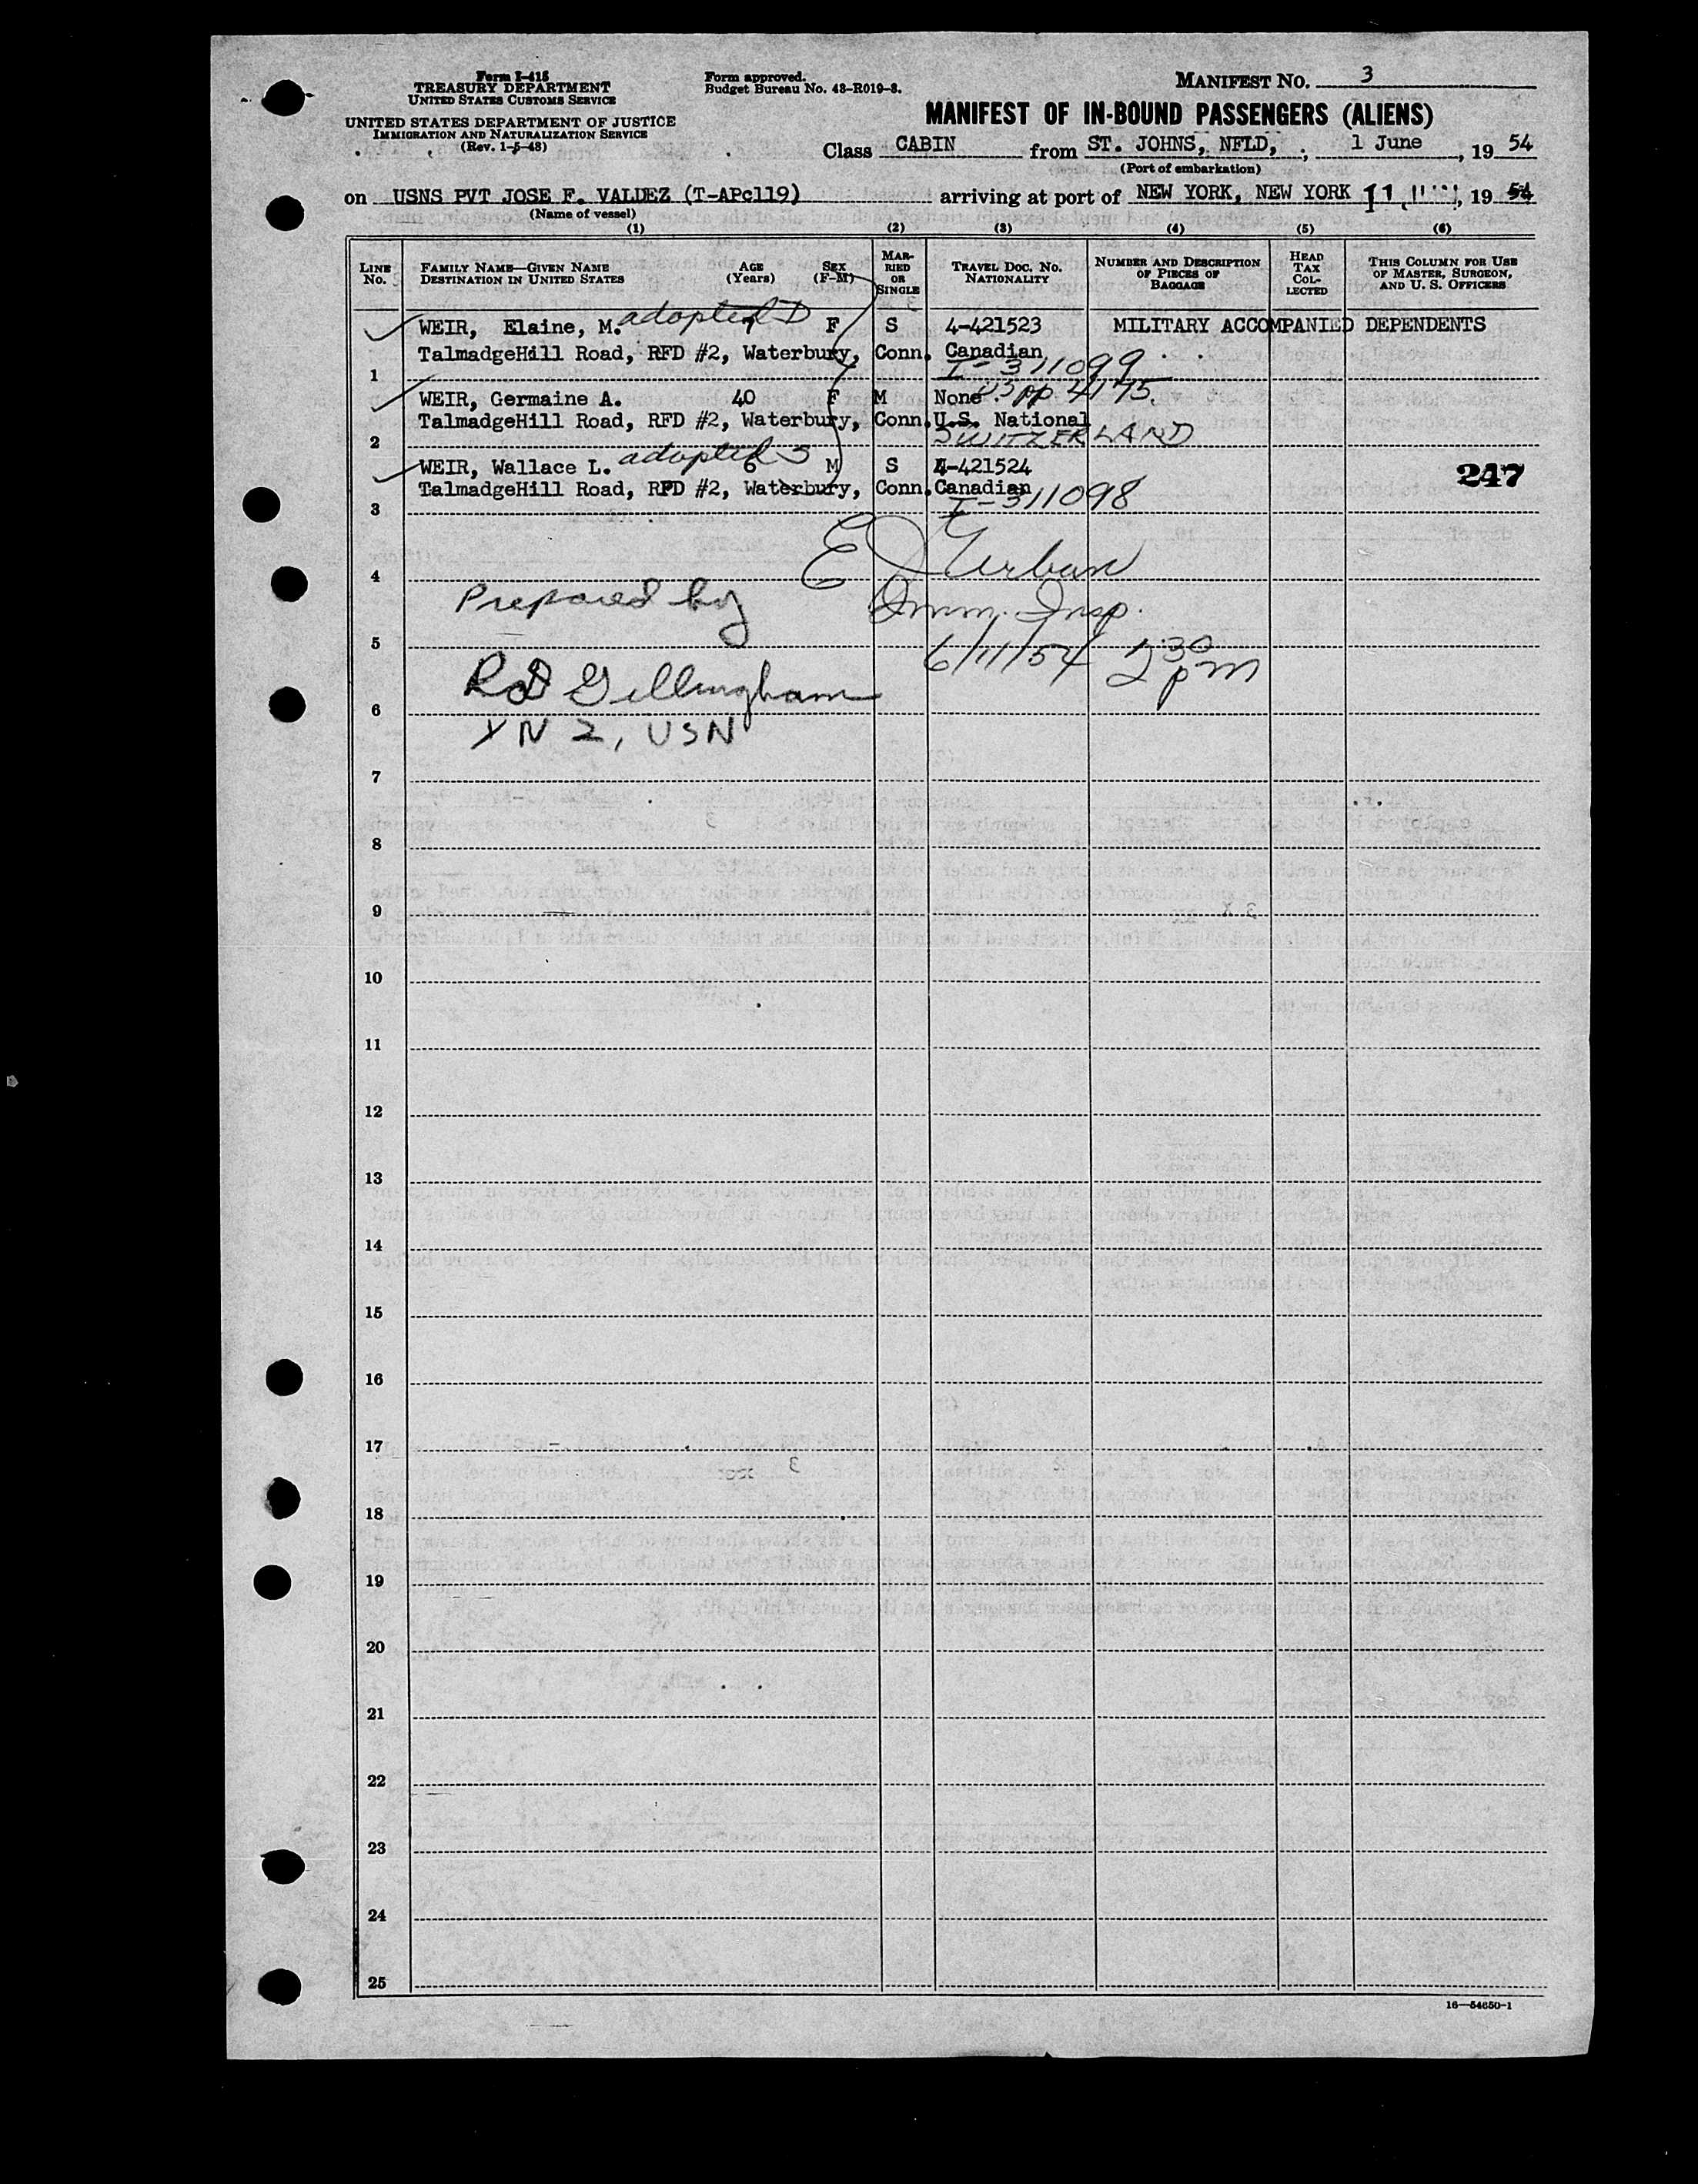 Form I-415
TREASURY DEPARTMENT
UNITED STATES CUSTOMS SERVICE
UNITED STATES DEPARTMENT OF JUSTICE
IMMIGRATION AND NATURALIZATION SERVICE
(Rev. 1-5-48)
Form approved.
Budget Bureau No. 43-R019-3.
MANIFEST NO. 3
MANIFEST OF IN-BOUND PASSENGERS (ALIENS)
Class CABIN from ST. JOHNS, NFLD, ; 1 June , 19 54
(Port of embarkation)
on USNS PVT JOSE F. VALDEZ (T-APc119) arriving at port of NEW YORK, NEW YORK 11 , 19 54
(Name of vessel)
(1) (2) (3) (4) (5) (6)
LINE NO. FAMILY NAME—GIVEN NAME DESTINATION IN UNITED STATES AGE (Years) SEX (F-M) MARRIED OR SINGLE TRAVEL DOC. NO. NATIONALITY NUMBER AND DESCRIPTION OF PIECES OF BAGGAGE HEAD TAX COLLECTED THIS COLUMN FOR USE OF MASTER, SURGEON, AND U. S. OFFICERS
WEIR, Elaine, M. adopted D 7 F S 4-421523 MILITARY ACCOMPANIED DEPENDENTS
TalmadgeHill Road, RFD #2, Waterbury, Conn. Canadian
1 I-311099
WEIR, Germaine A. 40 F M None USPP 41175
TalmadgeHill Road, RFD #2, Waterbury, Conn. U.S. National
2 SWITZERLAND
WEIR, Wallace L. adopted S 6 M S 4-421524
247
TalmadgeHill Road, RFD #2, Waterbury, Conn. Canadian
3 I-311098
E J Urban
4
Prepared by Imm. Insp.
5
6/11/54 2 30 pm
R D Gillingham
6
YN 2, USN
7
8
9
10
11
12
13
14
15
16
17
18
19
20
21
22
23
24
25
16—54650-1